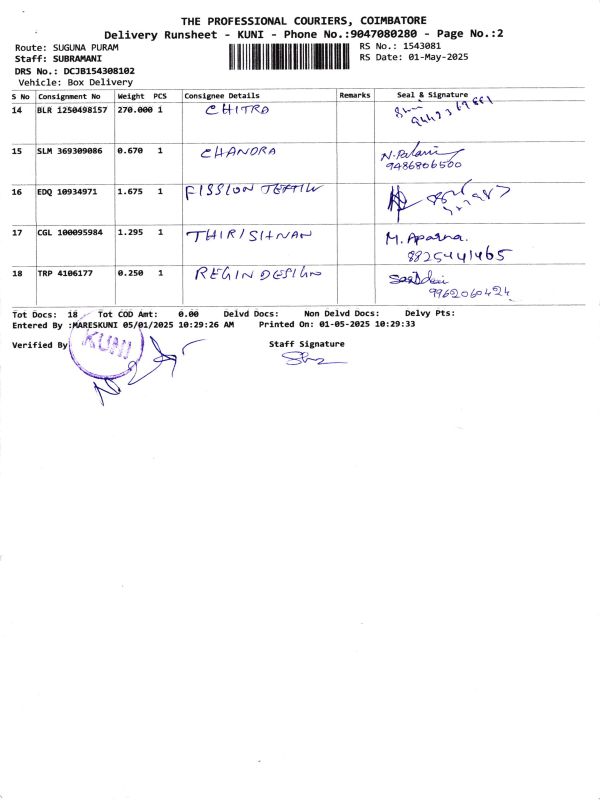 THE PROFESSIONAL COURIERS, COIMBATORE
Delivery Runsheet - KUNI - Phone No.:9047080280 - Page No.:2
Route: SUGUNA PURAM
RS No.: 1543081
Staff: SUBRAMANI
RS Date: 01-May-2025
DRS No.: DCJB154308102
Vehicle: Box Delivery
S No Consignment No Weight PCS Consignee Details Remarks Seal & Signature
14 BLR 1250498157 270.000 1 CHITRA
15 SLM 369309086 0.670 1 CHANDRA N. Palani
9486806500
16 EDQ 10934971 1.675 1 FISSION
17 CGL 100095984 1.295 1 THIRISHNAN M. Aparna.
8825441465
18 TRP 4106177 0.250 1 REGIN DESIGN
9962060424
Tot Docs: 18 Tot COD Amt: 0.00 Delvd Docs: Non Delvd Docs: Delvy Pts:
Entered By :MARESKUNI 05/01/2025 10:29:26 AM Printed On: 01-05-2025 10:29:33
Verified By Staff Signature
KUNI